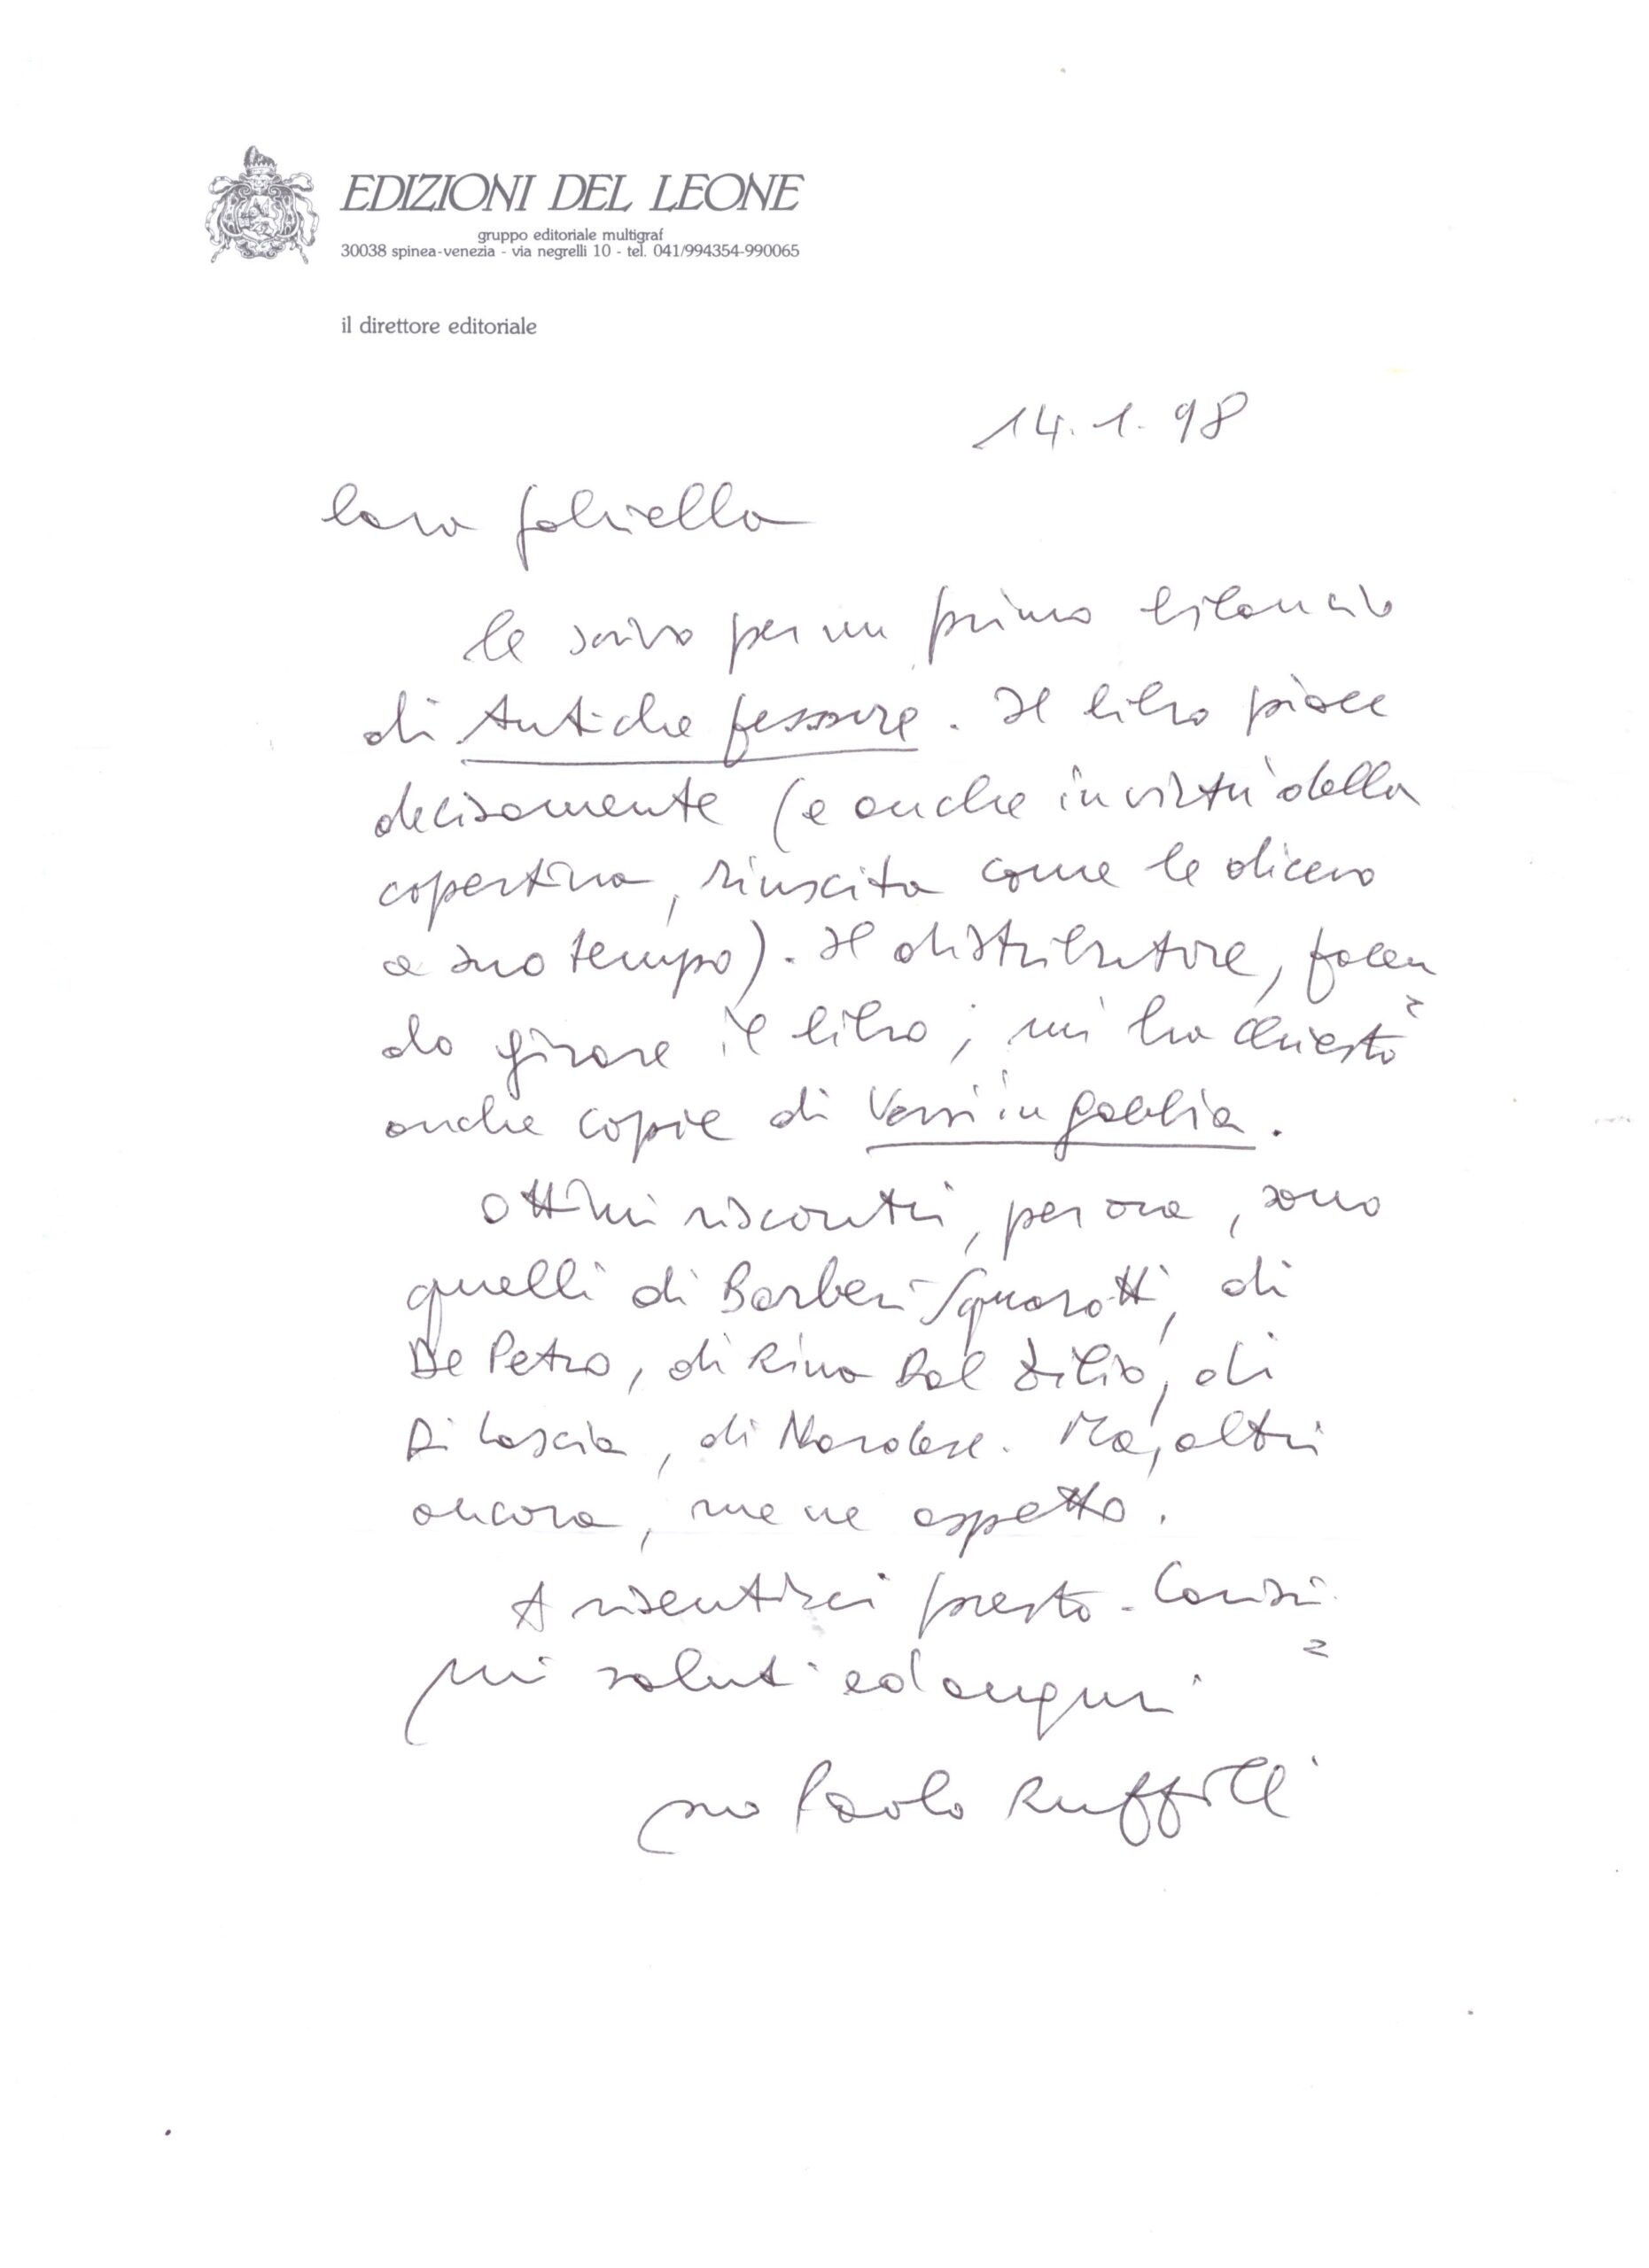 EDIZIONI DEL LEONE
gruppo editoriale multigraf
30038 spinea-venezia - via negrelli 10 - tel. 041/994354-990065
il direttore editoriale
14. 1. 98
Cara Gabriella
le scrivo per un primo bilancio
di Antiche fessure. Il libro piace
decisamente (e anche in virtù della
copertina, riuscita come le dicevo
a suo tempo). Il distributore, facen
do girare il libro, mi ha chiesto
anche copie di Versi in gabbia.
Ottimi riscontri, per ora, sono
quelli di Barberi-Squarotti, di
De Petro, di Rina Dal Zilio, di
Di Lascia, di Marolese. Ma, altri
ancora, me ne aspetto.
A risentirci presto. Caris[si]
mi saluti ed auguri
suo Paolo Ruffilli